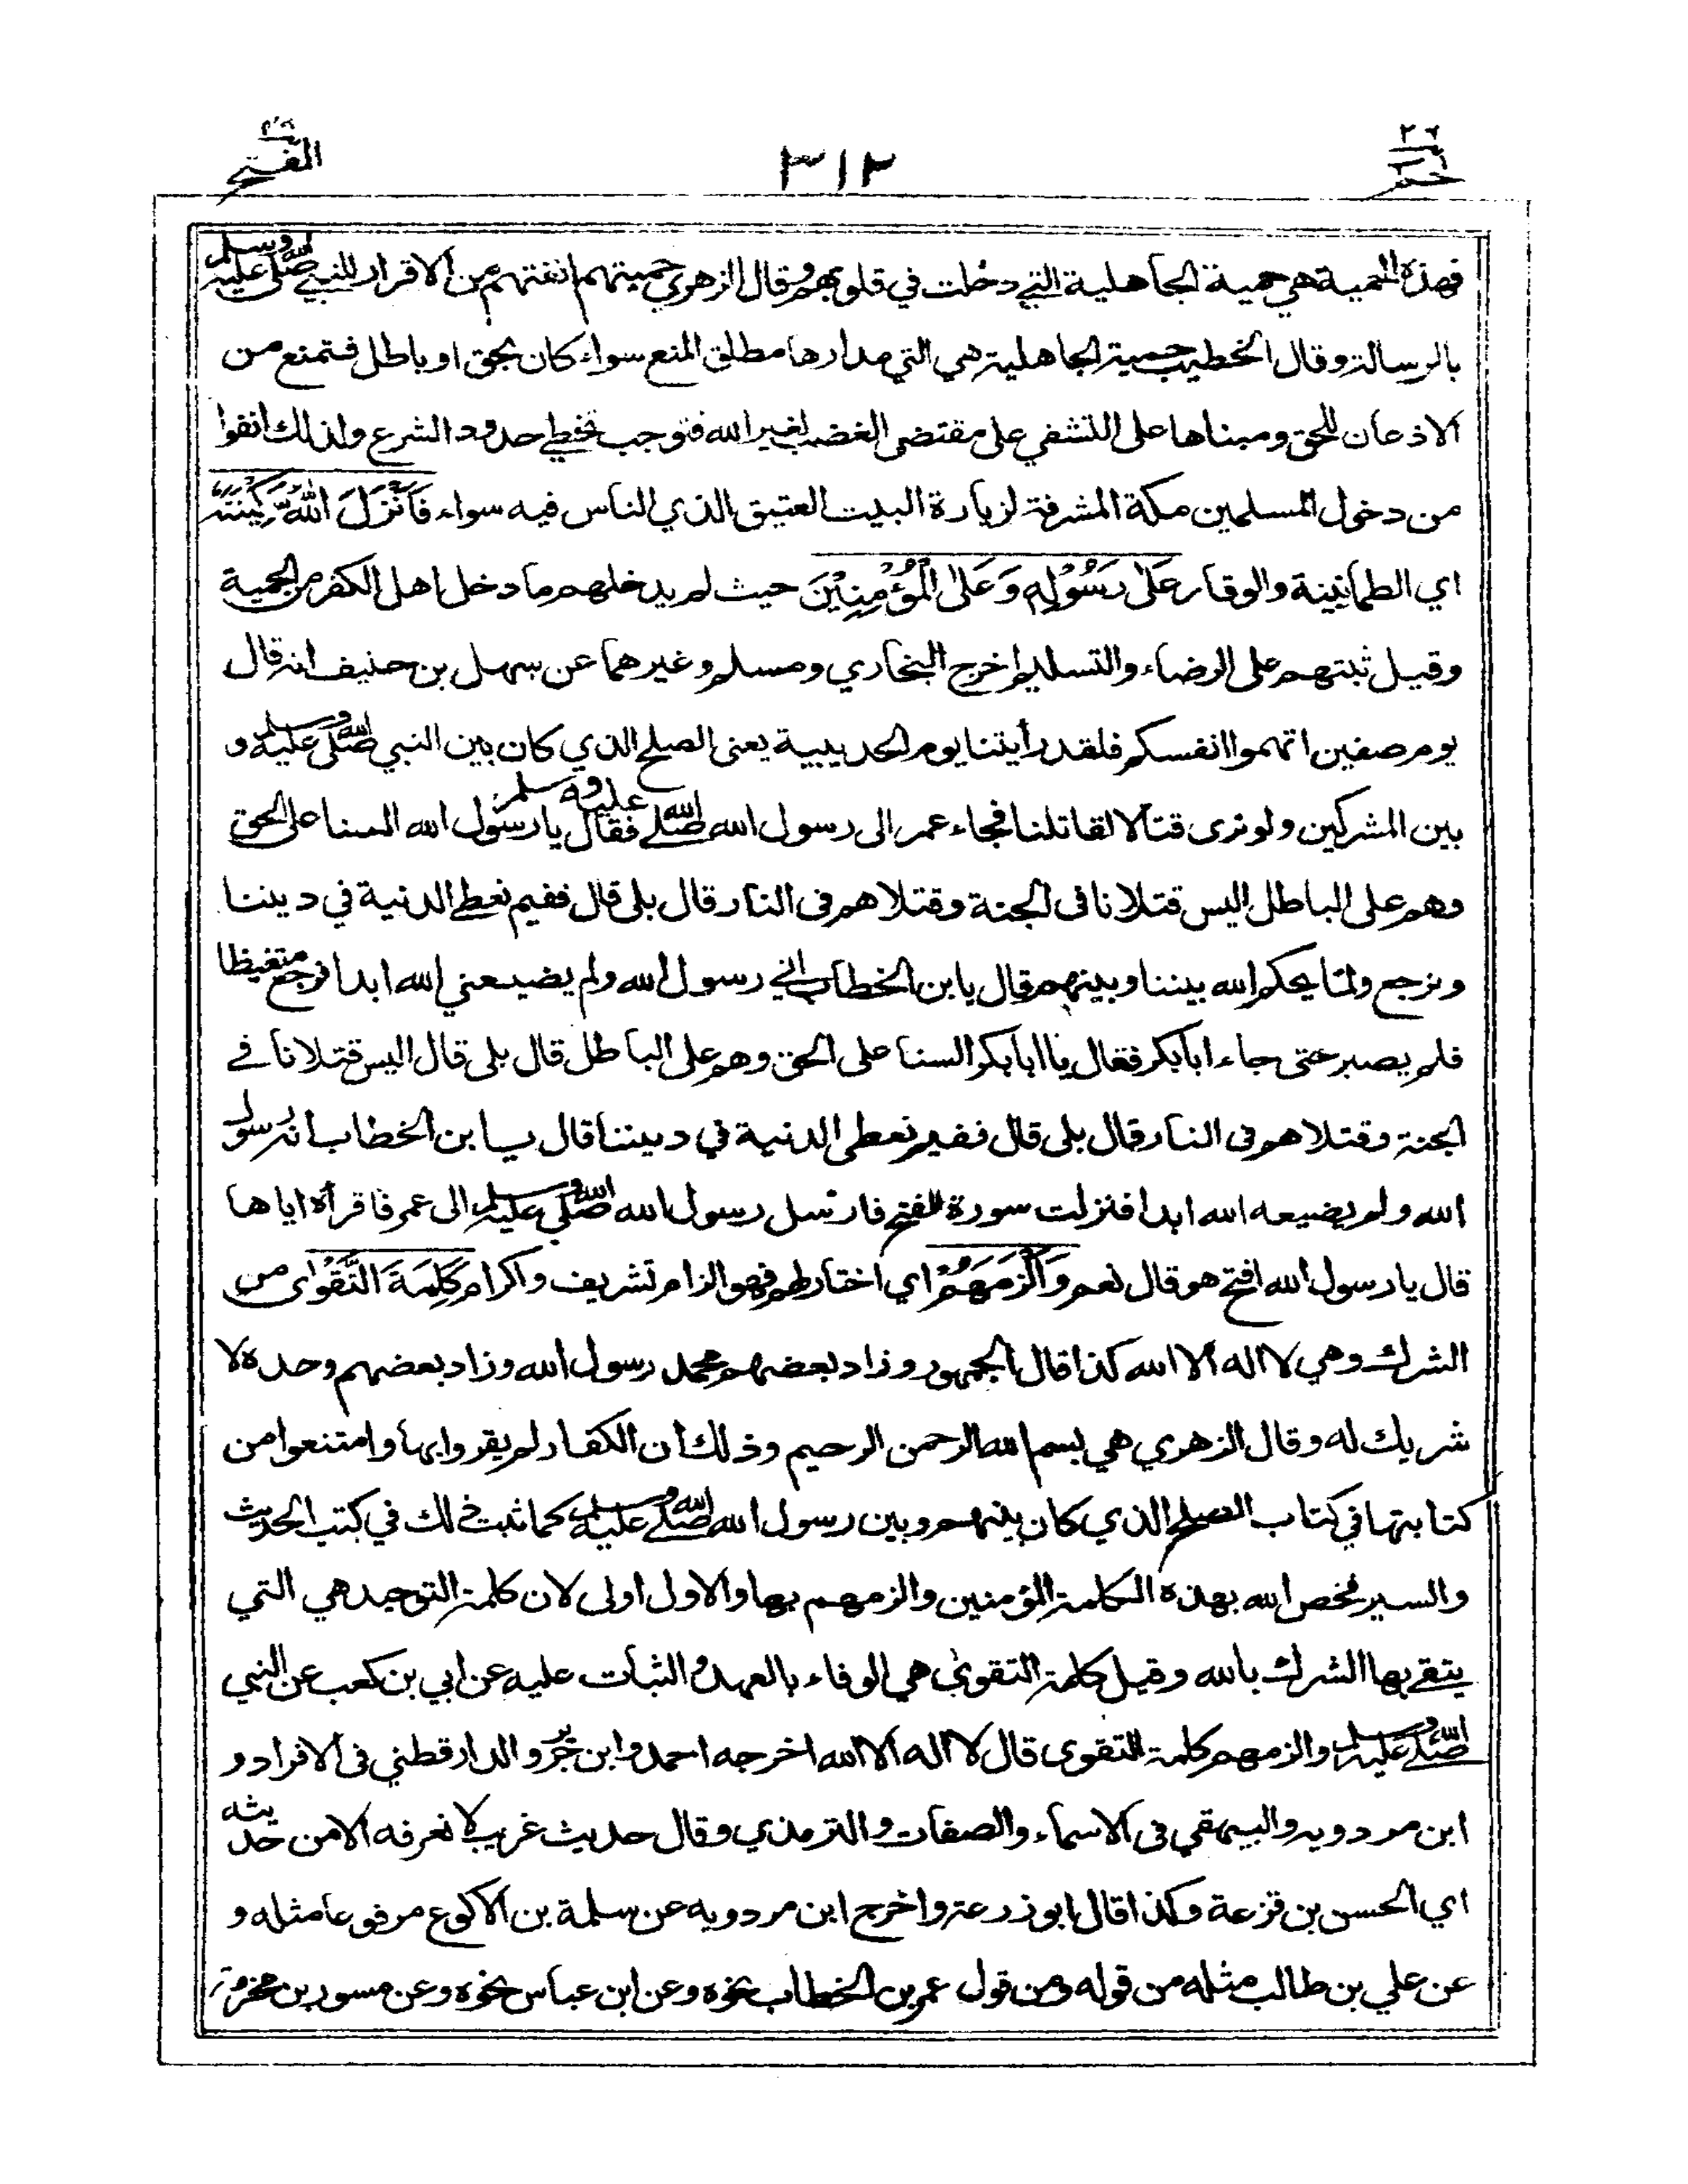 ٢٦
حم
٣١٢
الفتح
فهذه الحمية هي حمية الجاهلية التي دخلت في قلوبهم وقال الزهري حميتهم انفتهم من الاقرار للنبي صلى الله عليه وسلم
بالرسالة وقال الخطيب حمية الجاهلية هي التي مدارها مطلق المنع سواء كان بحق او باطل فتمنع من
الاذعان للحق ومبناها على التشفي على مقتضى الغضب لغير الله فتوجب تخطي حدود الشرع ولذلك انفوا
من دخول المسلمين مكة المشرفة لزيارة البيت العتيق الذي الناس فيه سواء فَاَنْزَلَ اللهُ سَكِيْنَتَهٗ
اي الطمانينة والوقار عَلٰى رَسُوْلِهٖ وَعَلَى الْمُؤْمِنِيْنَ حيث لم يدخلهم ما دخل اهل الكفر من الحمية
وقيل ثبتهم على الرضاء والتسليم اخرج البخاري ومسلم وغيرهما عن سهل بن حنيف انه قال
يوم صفين اتهموا انفسكم فلقد رأيتنا يوم الحديبية يعني الصلح الذي كان بين النبي صلى الله عليه وسلم و
بين المشركين ولو نرى قتالا لقاتلنا فجاء عمر الى رسول الله صلى الله عليه وسلم فقال يا رسول الله السنا على الحق
وهم على الباطل اليس قتلانا في الجنة وقتلاهم في النار قال بلى قال ففيم نعطي الدنية في ديننا
ونرجع ولما يحكم الله بيننا وبينهم قال يا بن الخطاب اني رسول الله ولم يضيعني الله ابدا فرجع متغيظا
فلم يصبر حتى جاء ابابكر فقال يا ابابكر السنا على الحق وهم على الباطل قال بلى قال اليس قتلانا في
الجنة وقتلاهم في النار قال بلى قال ففيم نعطي الدنية في ديننا قال يا بن الخطاب انه رسول
الله ولم يضيعه الله ابدا فنزلت سورة الفتح فارسل رسول الله صلى الله عليه وسلم الى عمر فاقرأه اياها
قال يا رسول الله افتح هو قال نعم وَاَلْزَمَهُمْ اي اختار لهم فهو الزام تشريف واكرام كَلِمَةَ التَّقْوٰى من
الشرك وهي لا اله الا الله كذا قال الجمهور وزاد بعضهم محمد رسول الله وزاد بعضهم وحده لا
شريك له وقال الزهري هي بسم الله الرحمن الرحيم وذلك ان الكفار لم يقروا بها وامتنعوا من
كتابتها في كتاب الصلح الذي كان بينهم وبين رسول الله صلى الله عليه وسلم كما ثبت ذلك في كتب الحديث
والسير فخص الله بهذه الكلمة المؤمنين والزمهم بها والاول اولى لان كلمة التوحيد هي التي
يتقي بها الشرك بالله وقيل كلمة التقوى هي الوفاء بالعهد والثبات عليه عن ابي بن كعب عن النبي
صلى الله عليه وسلم والزمهم كلمة التقوى قال لا اله الا الله اخرجه احمد وابن جرير والدارقطني في الافراد و
ابن مردويه والبيهقي في الاسماء والصفات والترمذي وقال حديث غريب لا نعرفه الا من حديثه
اي الحسن بن قزعة وكذا قال ابو زرعة واخرج ابن مردويه عن سلمة بن الاكوع مرفوعا مثله و
عن علي بن طالب مثله من قوله ومن قول عمر بن الخطاب نحوه وعن ابن عباس نحوه وعن مسور بن مخرمة